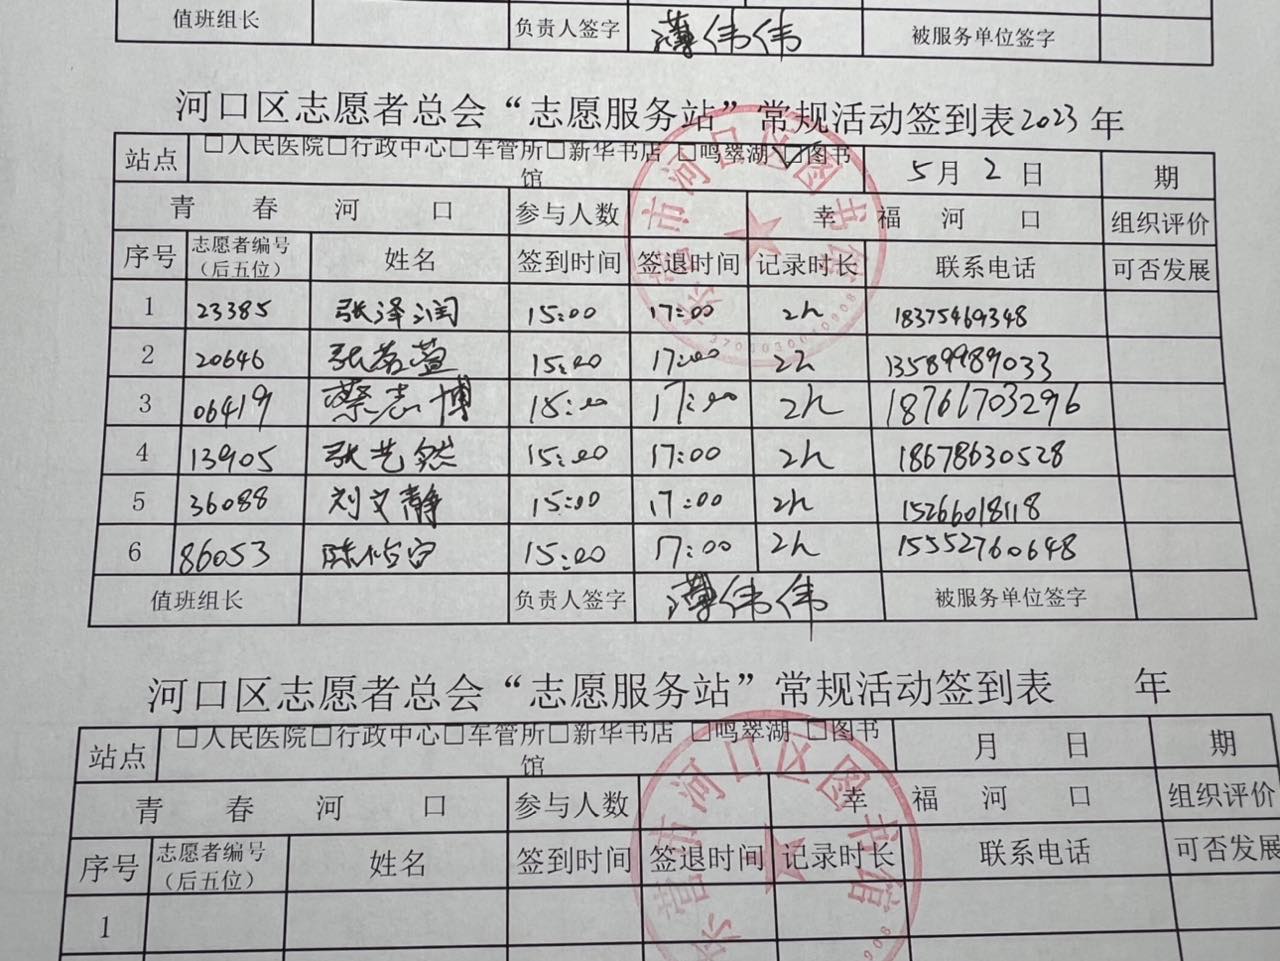 值班组长 负责人签字 薄伟伟 被服务单位签字
河口区志愿者总会“志愿服务站”常规活动签到表2023年
站点 □人民医院□行政中心□车管所□新华书店 □鸣翠湖 ☑图书馆 5月2日 期
青春河口 参与人数 幸福河口 组织评价
序号 志愿者编号（后五位） 姓名 签到时间 签退时间 记录时长 联系电话 可否发展
1 23385 张泽润 15:00 17:00 2h 18375469348
2 20646 张若萱 15:00 17:00 2h 13589989033
3 06419 蔡志博 15:00 17:00 2h 18761703296
4 13905 张艺然 15:00 17:00 2h 18678630528
5 36088 刘文静 15:00 17:00 2h 15266018118
6 86053 陈怡 15:00 17:00 2h 15552760648
值班组长 负责人签字 薄伟伟 被服务单位签字
东营市河口区图书馆
河口区志愿者总会“志愿服务站”常规活动签到表 年
站点 □人民医院□行政中心□车管所□新华书店 □鸣翠湖 □图书馆 月 日 期
青春河口 参与人数 幸福河口 组织评价
序号 志愿者编号（后五位） 姓名 签到时间 签退时间 记录时长 联系电话 可否发展
1
东营市河口区图书馆